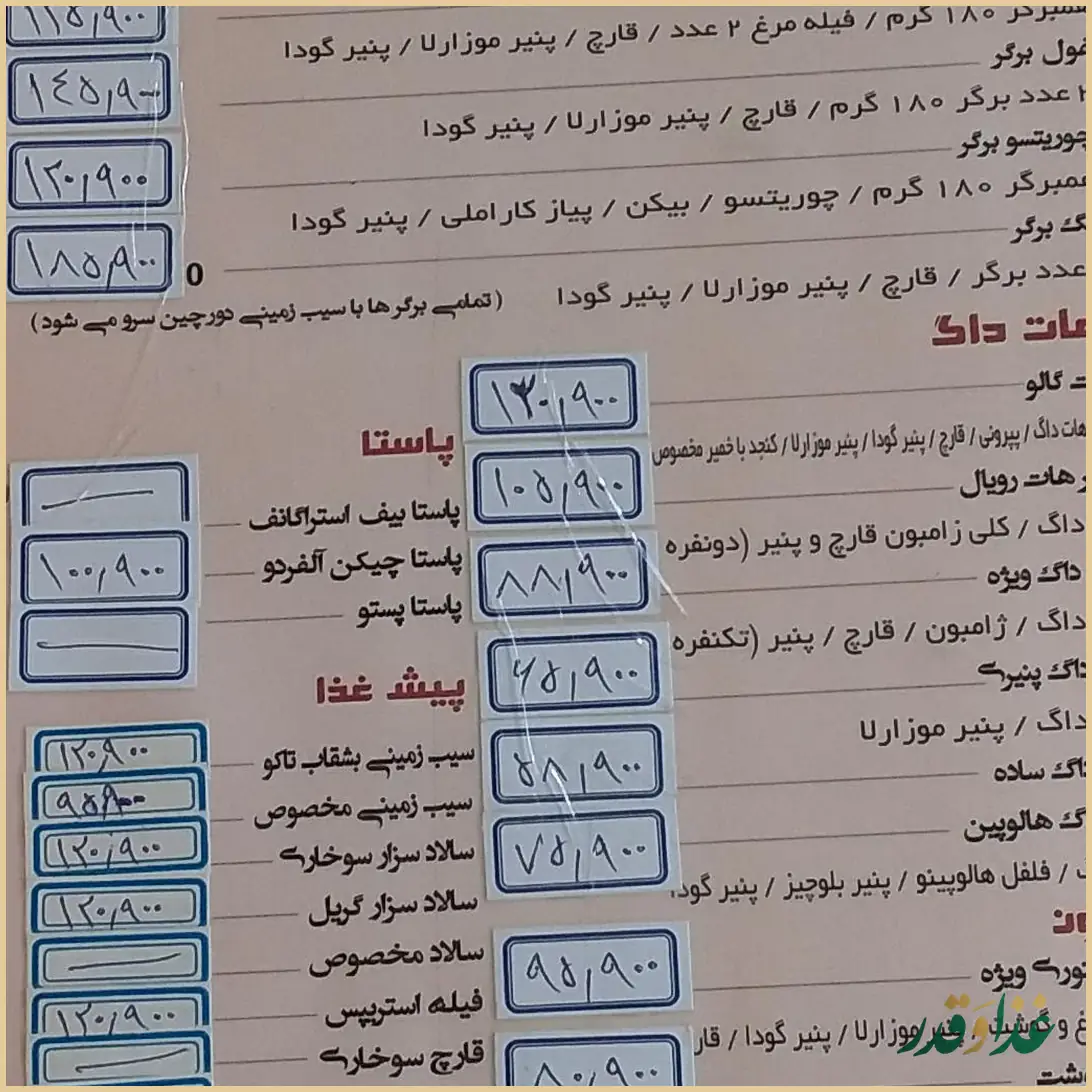 ۱۱۵,۹۰۰
۱۸۰ گرم / فیله مرغ ۲ عدد / قارچ / پنیر موزارلا / پنیر گودا
برگر ۱۴۵,۹۰۰
۲ عدد برگر ۱۸۰ گرم / قارچ / پنیر موزارلا / پنیر گودا
چوریتسو برگر ۱۲۰,۹۰۰
۱۸۰ گرم / چوریتسو / بیکن / پیاز کاراملی / پنیر گودا
برگر ۱۸۵,۹۰۰ 0
عدد برگر / قارچ / پنیر موزارلا / پنیر گودا
(تمامی برگر ها با سیب زمینی دورچین سرو می شود)
داگ
گالو ۱۳۰,۹۰۰
داگ / پپرونی / قارچ / پنیر گودا / پنیر موزارلا / کنجد با خمیر مخصوص
هات رویال ۱۰۵,۹۰۰
داگ / کلی ژامبون قارچ و پنیر (دونفره
داگ ویژه ۸۸,۹۰۰
داگ / ژامبون / قارچ / پنیر (تکنفره
داگ پنیری ۶۵,۹۰۰
داگ / پنیر موزارلا
ساده ۵۸,۹۰۰
هالوپین ۷۵,۹۰۰
/ فلفل هالوپینو / پنیر بلوچیز / پنیر گودا
ویژه ۹۵,۹۰۰
و گوشت / پنیر موزارلا / پنیر گودا /
۸۰,۹۰۰
پاستا
پاستا بیف استراگانف
پاستا چیکن آلفردو ۱۰۰,۹۰۰
پاستا پستو
پیش غذا
سیب زمینی بشقاب تاکو ۱۲۰,۹۰۰
سیب زمینی مخصوص ۹۵,۹۰۰
سالاد سزار سوخاری ۱۲۰,۹۰۰
سالاد سزار گریل ۱۲۰,۹۰۰
سالاد مخصوص
فیله استریپس ۱۲۰,۹۰۰
قارچ سوخاری
غذا و قدر